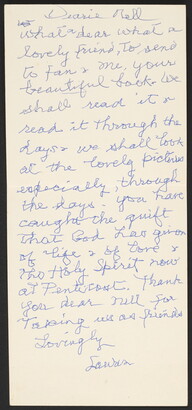 Dearie Nell
What dear what a
lovely friend, To send
to Fan & me, your
beautiful book. We
shall read it &
read it through the
days & we shall look
at the lovely pictures
especially through
the days - you have
caught the quift
that God has given
of life & of love &
the Holy Spirit now
at Pentecost. Thank
you dear Nell for
Taking us as friends
Lovingly